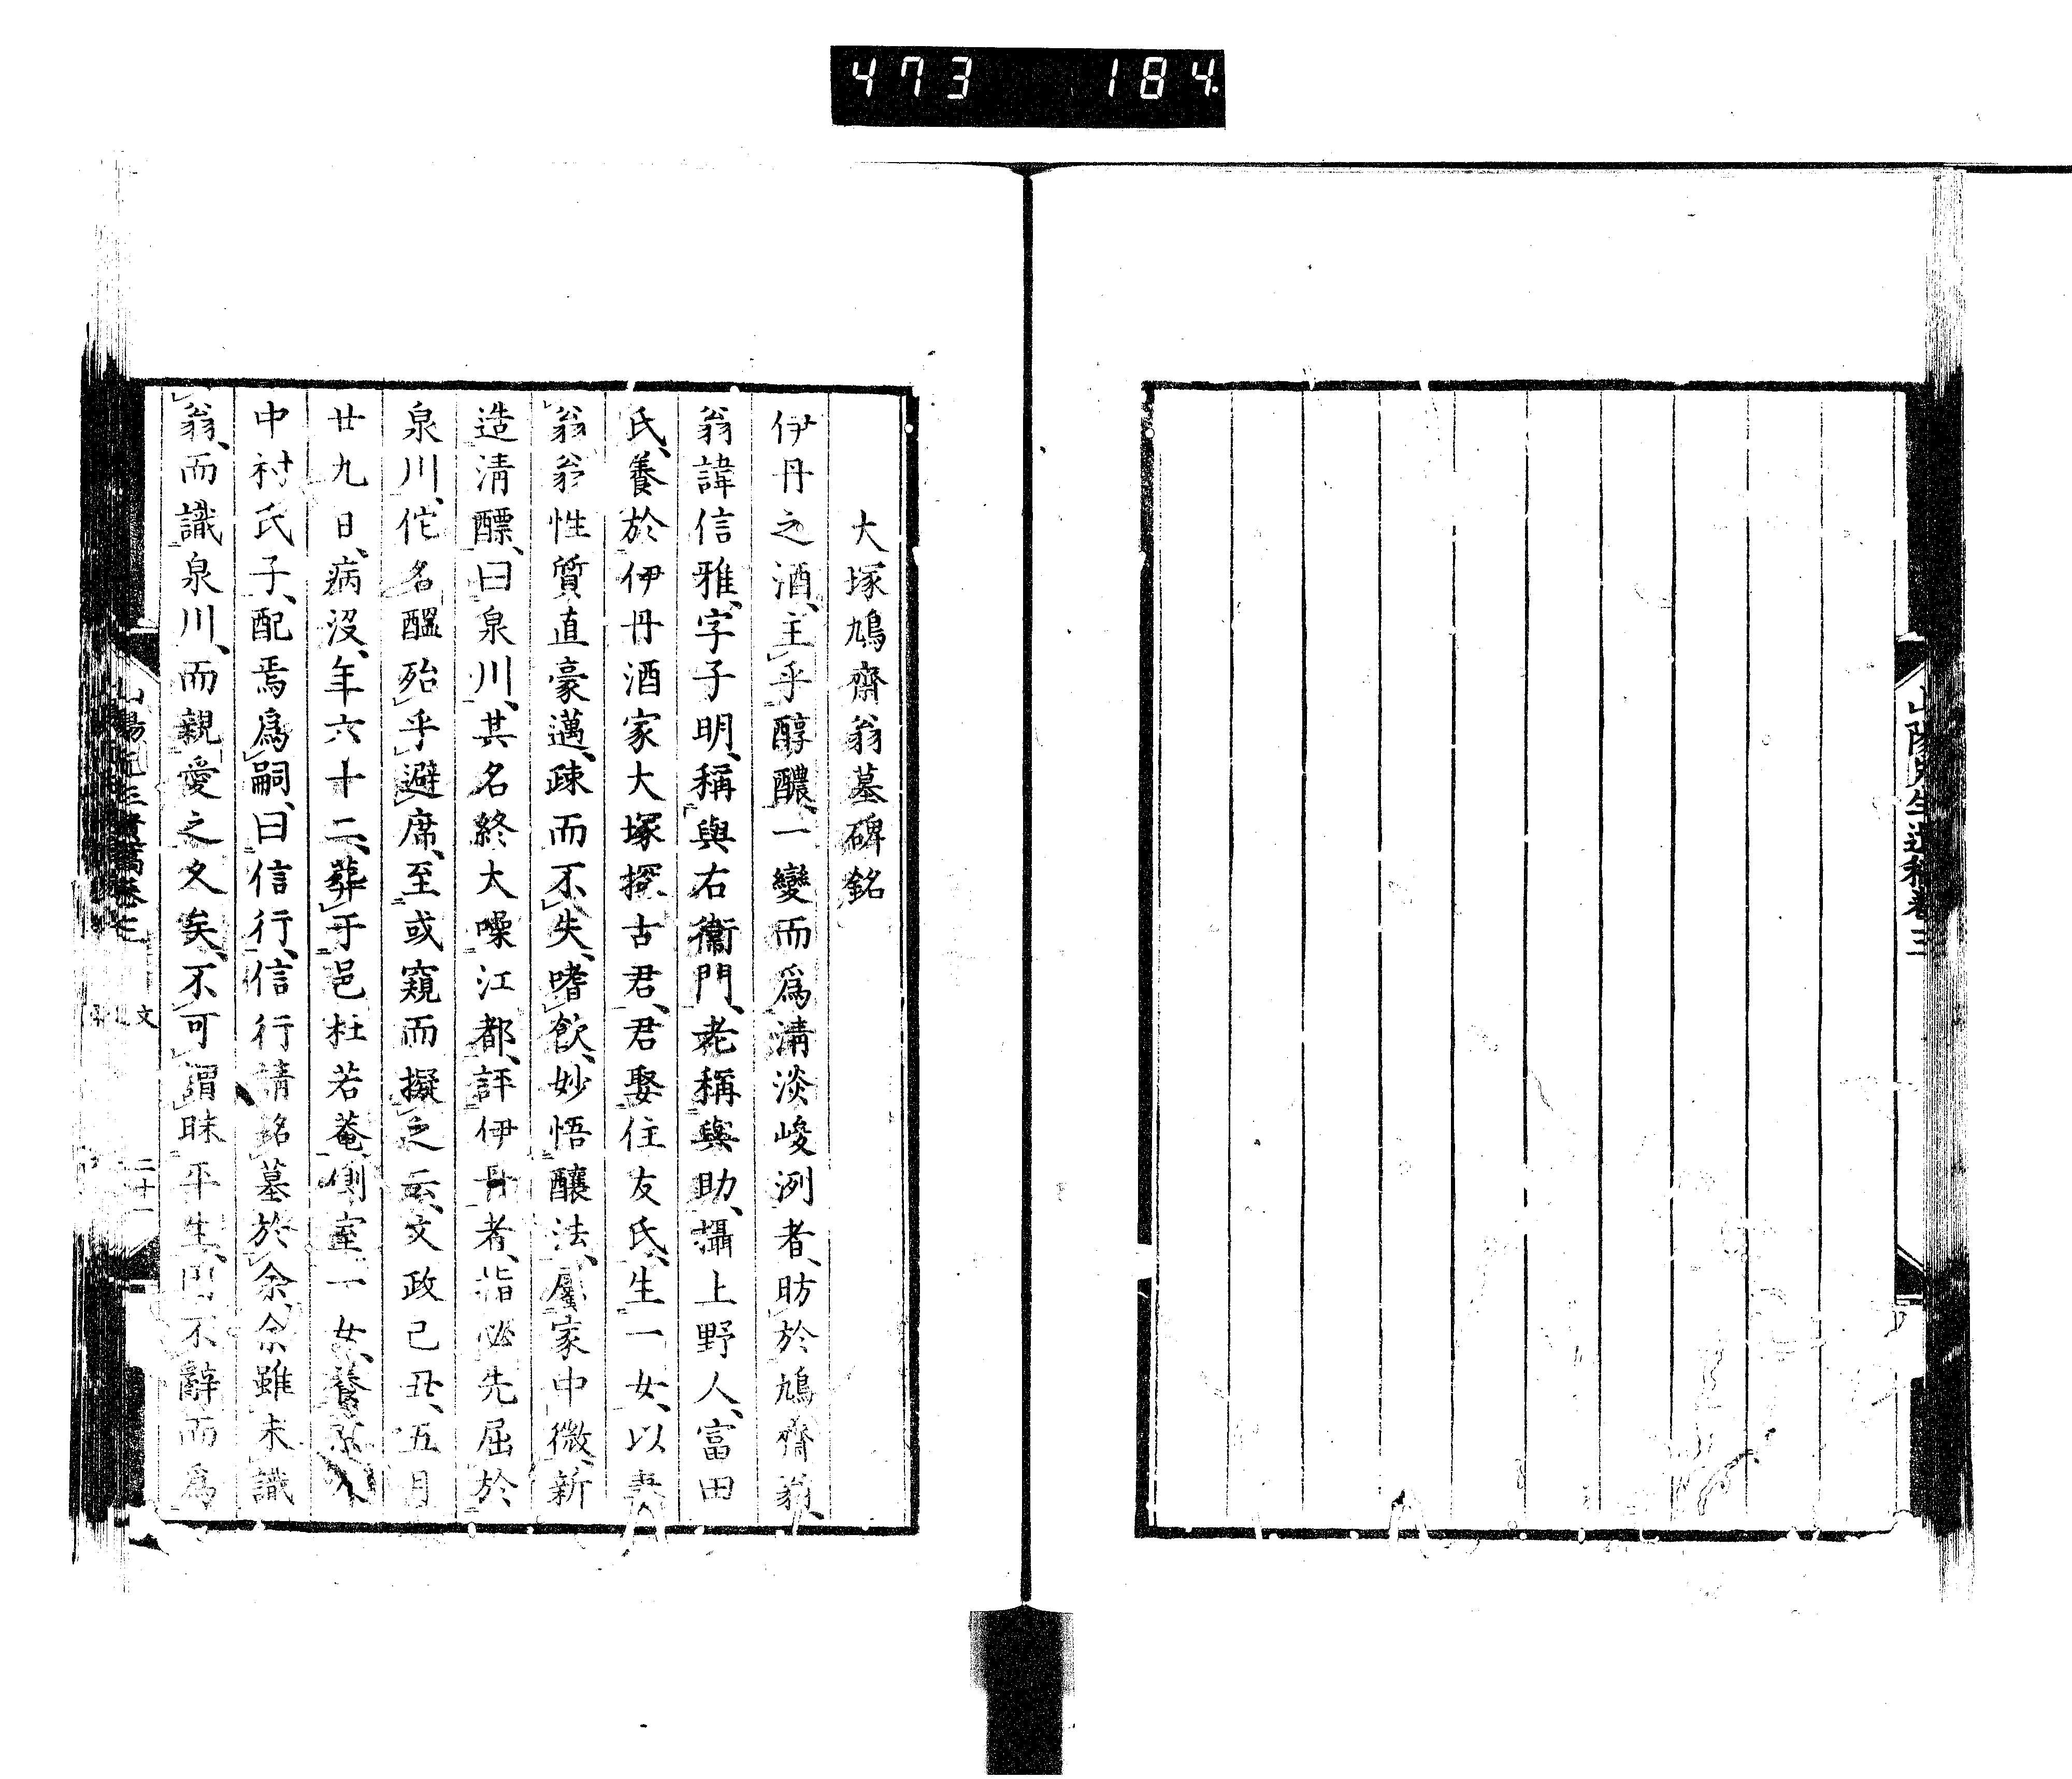 473 184.
山陽先生遺稿卷三
大塚鳩齋翁墓碑銘
伊丹之酒、主乎醇醲、一變而爲淸淡峻洌者、昉於鳩齋翁、
翁諱信雅、字子明、稱與右衞門、老稱與助、攝上野人、富田
氏、養於伊丹酒家大塚探古君、君娶住友氏、生一女、以妻
翁、翁性質直豪邁、疎而不失、嗜飮、妙悟釀法、屬家中微、新
造淸醥、曰泉川、其名終大噪江都、評伊丹者、詣必先屈於
泉川、佗名醞殆乎避席、至或窺而擬之云、文政己丑、五月
廿九日、病沒、年六十二、葬于邑杜若菴側、室一女、養
中村氏子、配焉爲嗣、曰信行、信行請銘墓於余、余雖未識
翁、而識泉川、而親愛之久矣、不可謂昧平生、不辭而爲
文
二十一